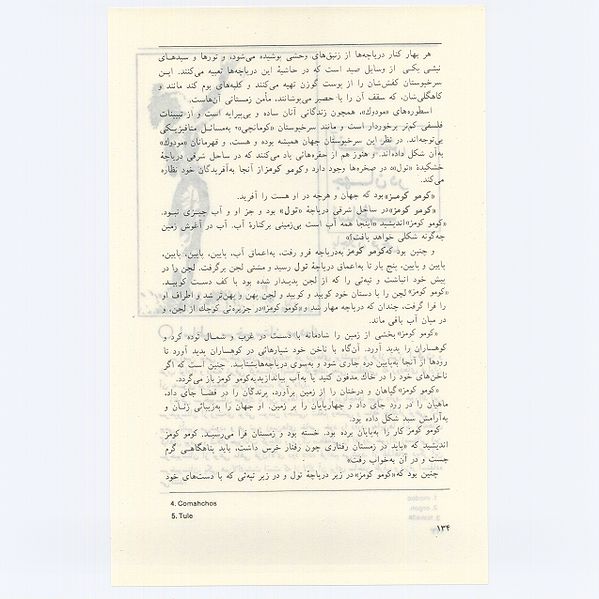 هر بهار کنار دریاچه‌ها از زنبق‌های وحشی پوشیده می‌شود، و تورها و سبدهای
نیئی یکی از وسایل صید است که در حاشیهٔ این دریاچه‌ها تعبیه می‌کنند. این
سرخپوستان کفش‌شان را از پوست گوزن تهیه می‌کنند و کلبه‌های بوم کند مانند و
کاهگلی‌شان، که سقف آن را با حصیر می‌پوشانند، مأمن زمستانی آن‌هاست.
اسطوره‌های «مودوک»، همچون زندگانی آنان ساده و بی‌پیرایه است و از تبیینات
فلسفی کم‌تر برخوردار است و مانند سرخپوستان «کومانچی»⁴ به‌مسائل متافیزیکی
بی‌توجه‌اند. در نظر این سرخپوستان جهان همیشه بوده و هست، و قهرمانان «مودوک»
به‌آن شکل داده‌اند. و هنوز هم از حفره‌هائی یاد می‌کنند که در ساحل شرقی دریاچهٔ
خشکیدهٔ «تول»⁵ در صخره‌ها وجود دارد و کومو کومز از آنجا به‌آفریدگان خود نظاره
می‌کند.
«کومو کومز» بود که جهان و هرچه در او هست را آفرید.
«کومو کومز» در ساحل شرقی دریاچهٔ «تول» بود و جز او و آب چیزی نبود.
«کومو کومز» اندیشید «اینجا همه آب است بی‌زمینی برکنارهٔ آب. آب در آغوش زمین
چه‌گونه شکلی خواهد یافت؟»
و چنین بود که‌کومو کومز به‌دریاچه فرو رفت، به‌اعماق آب، پایین، پایین، پایین،
پایین و پایین، پنج بار تا به‌اعماق دریاچهٔ تول رسید و مشتی لجن برگرفت. لجن را در
پیش خود انباشت و تپه‌ئی را که از لجن پدیدار شده بود با کف دست کوبید.
«کومو کومز» لجن را با دستان خود کوبید و کوبید و لجن پهن و پهن‌تر شد و اطراف او
را فرا گرفت، چندان که دریاچه مهار شد و «کومو کومز» در جزیره‌ئی کوچک از لجن، و
در میان آب باقی ماند.
«کومو کومز» بخشی از زمین را شادمانه با دست در غرب و شمال توده کرد و
کوهساران را پدید آورد. آن‌گاه با ناخن خود شیارهائی در کوهساران پدید آورد تا
رودها از آنجا به‌پایین دره جاری شود و به‌سوی دریاچه‌ها بشتابد. چنین است که اگر
ناخن‌های خود را در خاک مدفون کنید یا به‌آب بیاندازید به‌کومو کومز باز می‌گردد.
«کومو کومز» گیاهان و درختان را از زمین برآورد، پرندگان را در فضا جای داد،
ماهیان را در رود جای داد و چهارپایان را بر زمین. او جهان را به‌زیبائی زنان و
به‌آرامش سبد شکل داده بود.
کومو کومز کار را به‌پایان برده بود. خسته بود و زمستان فرا می‌رسید. کومو کومز
اندیشید که «باید در زمستان رفتاری چون رفتار خرس داشت، باید پناهگاهی گرم
جست و در آن به‌خواب رفت»
چنین بود که «کومو کومز» در زیر دریاچهٔ تول و در زیر تپه‌ئی که با دست‌های خود
4. Comahchos
5. Tule
۱۳۴